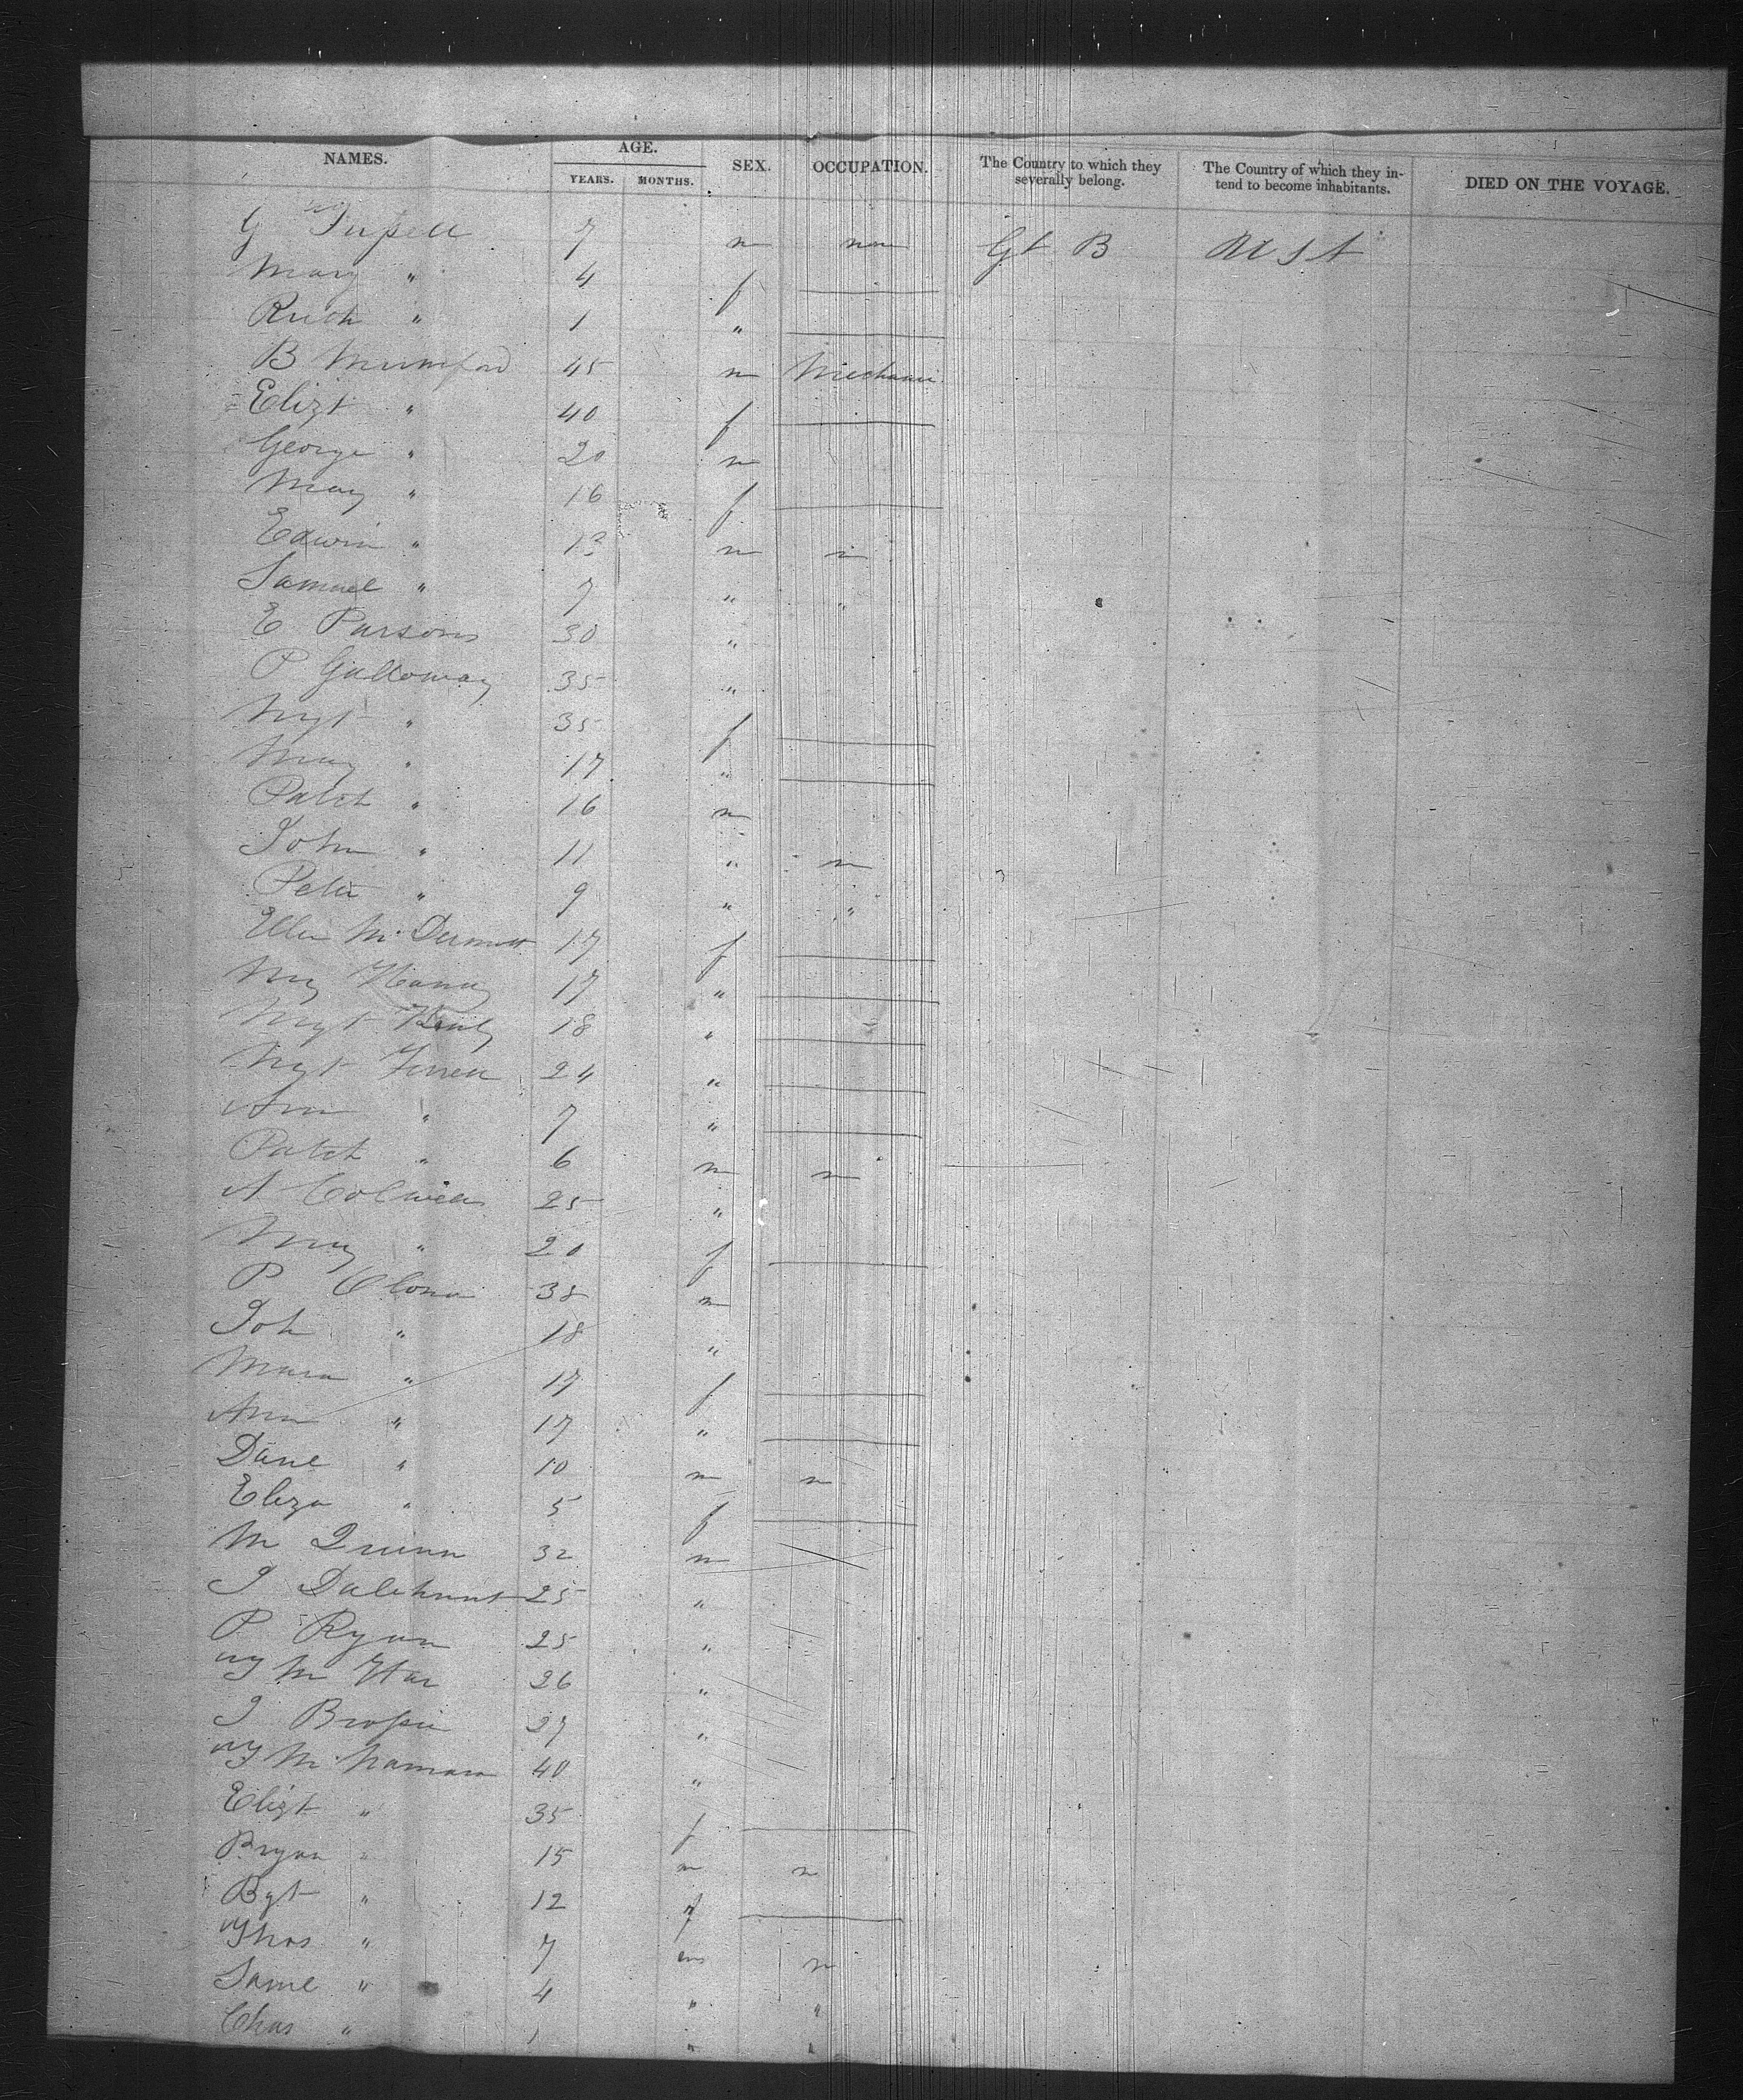 NAMES. AGE. SEX. OCCUPATION. The Country to which they severally belong. The Country of which they intend to become inhabitants. DIED ON THE VOYAGE.
YEARS. MONTHS.
G 7 m non Gt B U S A
Mary " 4 f
" 1 "
B Mumford 45 m Mechanic
Elizt " 40 f
George " 20 m
Mary " 16 f
Edwin " 13 m n
Samuel " 7 " "
E Parsons 30 "
P Galloway 35 "
Mgt " 35 f
Mary " 17 "
Patck " 16 m
John " 11 " n
Peter " 9 " "
Ellen McDermott 17 f
My 17 "
Mgt 18 "
Mgt 24 "
Ann " 7 "
Patck " 6 m n
A Colwell 25 "
Mary " 20 f
P 38 m
Joh " 18 "
Maria " 17 f
Ann " 17 "
Danl " 10 m n
Eliza " 5 f
M Quinn 32 m
J Dalehunt 25 "
P Ryan 25 "
26 "
J 27 "
T McNamara 40 "
Elizt " 35 f
Bryan " 15 m n
Bgt " 12 f
Thos " 7 m n
Saml " 4 " "
Chas " 1 " "